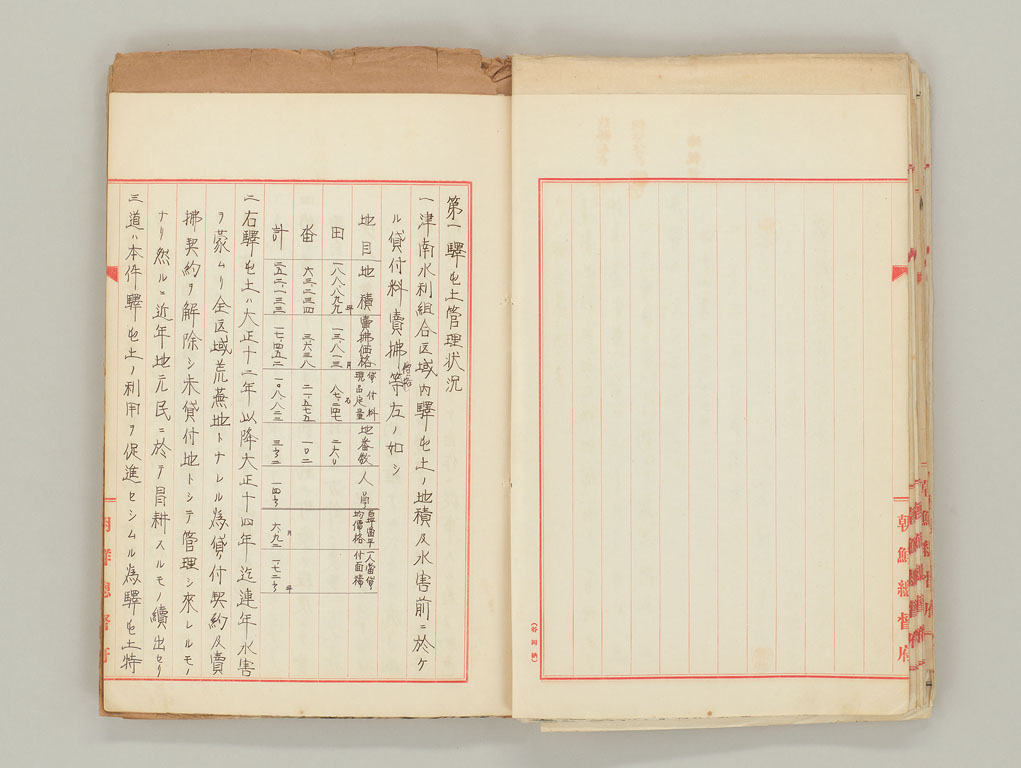 第一驛屯土管理状況
一津南水利組合区域内驛屯土ノ地積及水害前ニ於ケ
ル貸付料賣拂價格等左ノ如シ
地目 地積 賣拂価格 貸付料現品定量 地番数 人員 百坪当平均價格 一人当貸付面積
田 一八八、八九九坪 一三、八一三円 二六〇
畓 六三、二三四 三、六三八 二一、五七五 一〇二
計 二五二、一三三 一七、四五二 一〇、八八二
二右驛屯土ハ大正十二年以降大正十四年迄連年水害
ヲ蒙ムリ全区域荒蕪地トナレル為貸付契約及賣
拂契約ヲ解除シ未貸付地トシテ管理シ來レルモノ
ナリ然ルニ近年地元民ニ於テ冒耕スルモノ續出セリ
三道ハ本件驛屯土ノ利用ヲ促進セシムル為驛屯土特
朝鮮總督府
朝鮮總督府